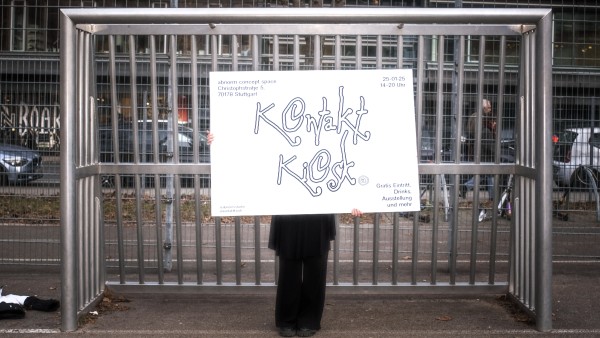 concept space
Christophstraße 5
70178 Stuttgart
25-01-25
14-20 Uhr
Kontakt
Kiosk
Gratis Eintritt
Drinks
Ausstellung
und mehr